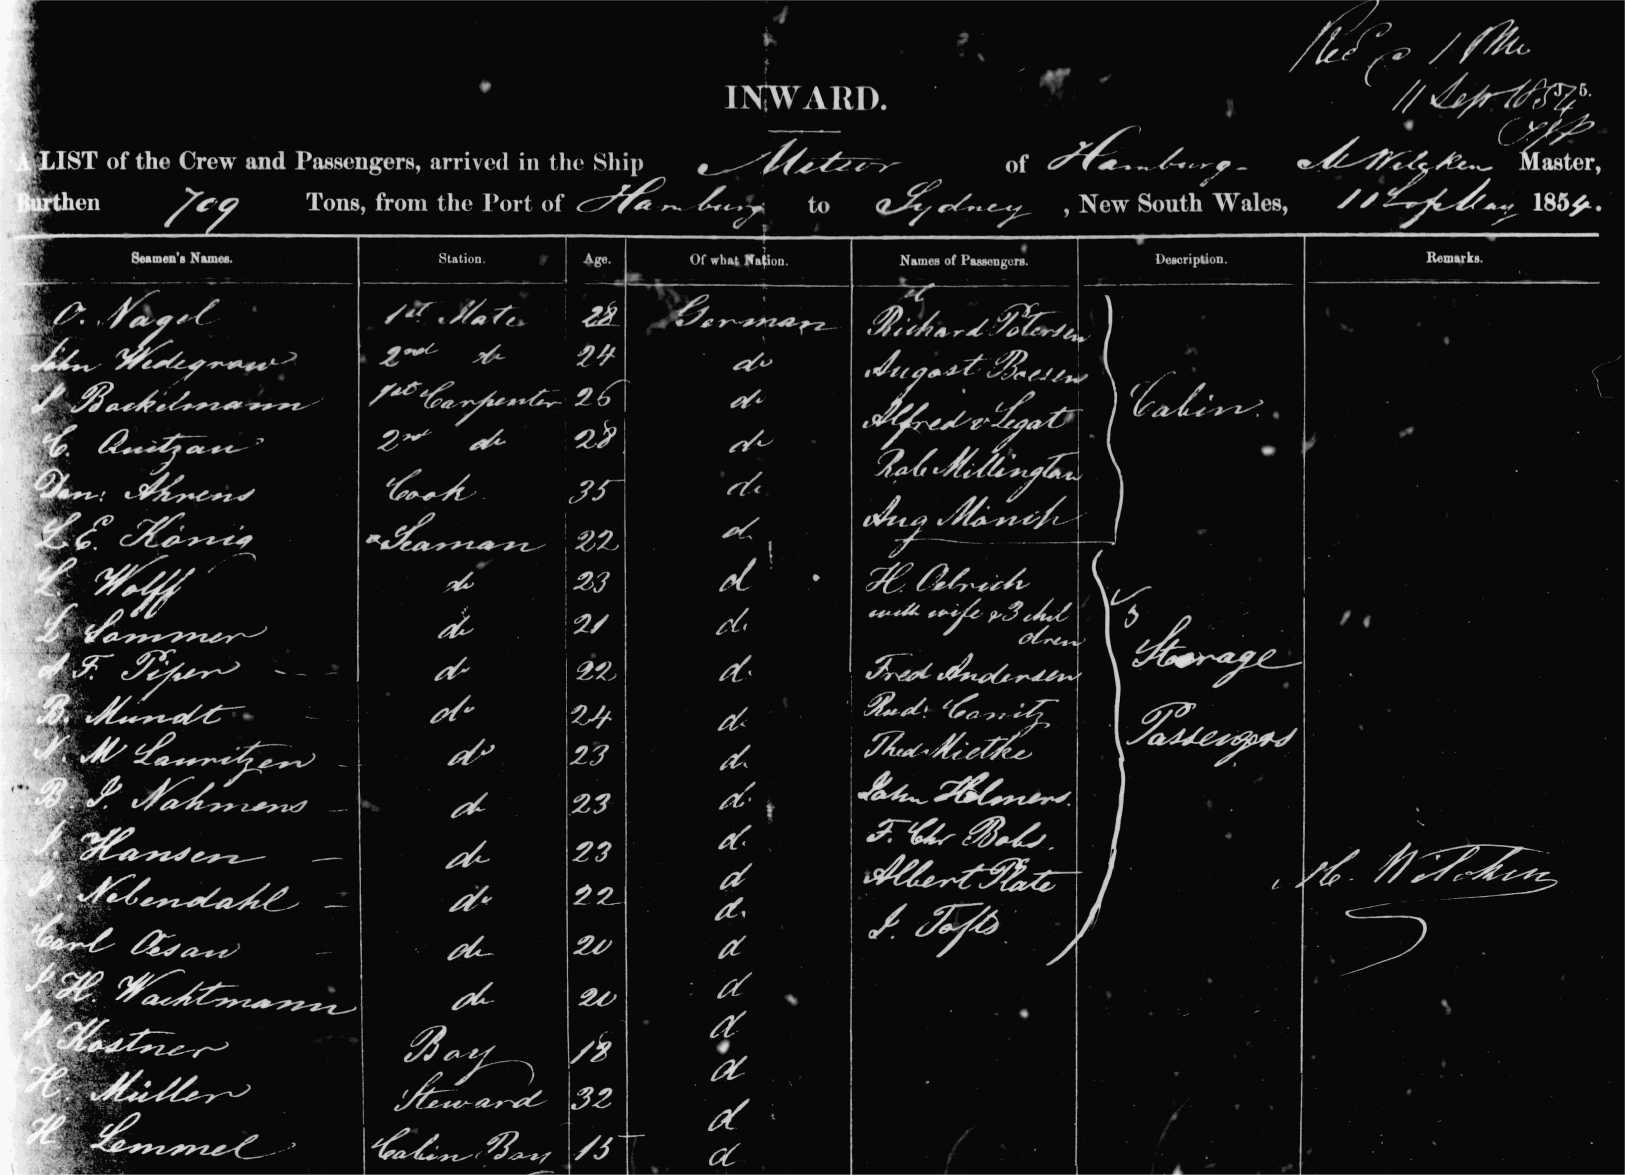 Recd @ 1 PM
11 Sep 1854
INWARD.
A LIST of the Crew and Passengers, arrived in the Ship Meteor of Hamburg - M Wilcken Master,
Burthen 709 Tons, from the Port of Hamburg to Sydney, New South Wales, 11 1854.
Seamen's Names. Station. Age. Of what Nation. Names of Passengers. Description. Remarks.
O. Nagel 1st Mate 28 German Richard Petersen
John Wedegrow 2nd do 24 do August Boesen
J Bockelmann 1st Carpenter 26 do Alfred v Legat Cabin.
C. Quitzau 2nd do 28 do Rob Millington
Dan: Ahrens Cook 35 do Aug Mönch
L.E. König Seaman 22 d.
L Wolff do 23 d H. Oelrich
with wife & 3 chil
dren 5
L Sommer do 21 d.
A F. Piper do 22 d. Fred Andersen Steerage
B. Mundt do 24 d. Rud: Canitz Passengers
N. M Lauritzen do 23 d. Thed Mietke
B. J. Nahmens do 23 d. John Helmers.
J. Hansen do 23 d. F. Chr Bobs.
J. Nebendahl do 22 d Albert Plate M. Wilcken
Carl Oesau do 20 d. J. Tofts
J H. Wachtmann do 20 d
J. Kostner Boy 18 d
H. Müller Steward 32 d
H Lemmel Cabin Boy 15 d